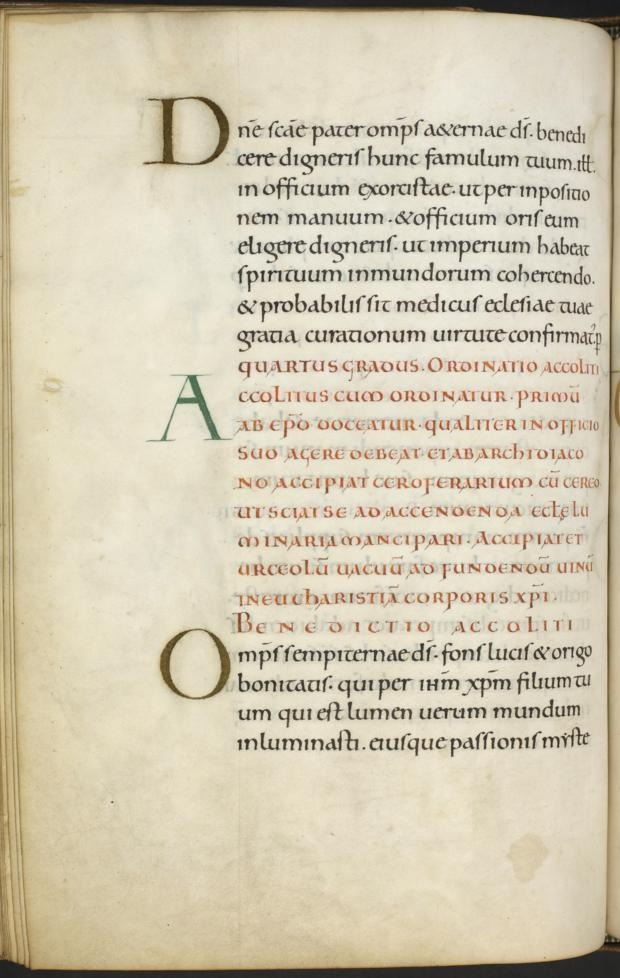 Dn̄e sc̄ae pater omp̄s a&ernae ds̄. benedi
cere digneris hunc famulum tuum. ill̄.
in officium exorcistae. ut per inpositio
nem manuum. & officium oris eum
eligere digneris. ut imperium habeat
spirituum inmundorum cohercendo.
& probabilis sit medicus eclesiae tuae
gratia curationum uirtute confirmat.
QUARTUS GRADUS. ORDINATIO ACCOLITI
ACCOLITUS CUM ORDINATUR. PRIMŪ
AB EP̄O DOCEATUR. QUALITER IN OFFICIO
SUO AGERE DEBEAT. ET AB ARCHIDIACO
NO ACCIPIAT CEROFERARIUM CŪ CEREO
UT SCIAT SE AD ACCENDENDA ECCLE LU
MINARIA MANCIPARI. ACCIPIAT ET
URCEOLŪ UACUŪ AD FUNDENDŪ UINŪ
IN EUCHARISTIĀ CORPORIS XP̄I.
BENEDICTIO ACCOLITI
Omp̄s sempiternae ds̄. fons lucis & origo
bonitatis. qui per ihm̄ xpm̄ filium tu
um qui est lumen uerum mundum
inluminasti. eiusque passionis myste